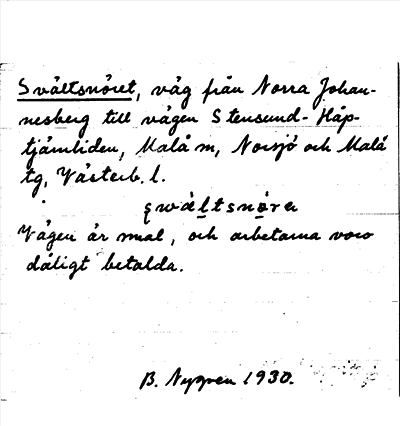 Svältsnöret, väg från Norra Johan-
nesberg till vägen Stensund-Håp-
tjärnliden, Malå sn, Norsjö och Malå
tg, Västerb. l.
swältsnöre
Vägen är smal, och arbetarna voro
dåligt betalda.
B. Nygren 1930.